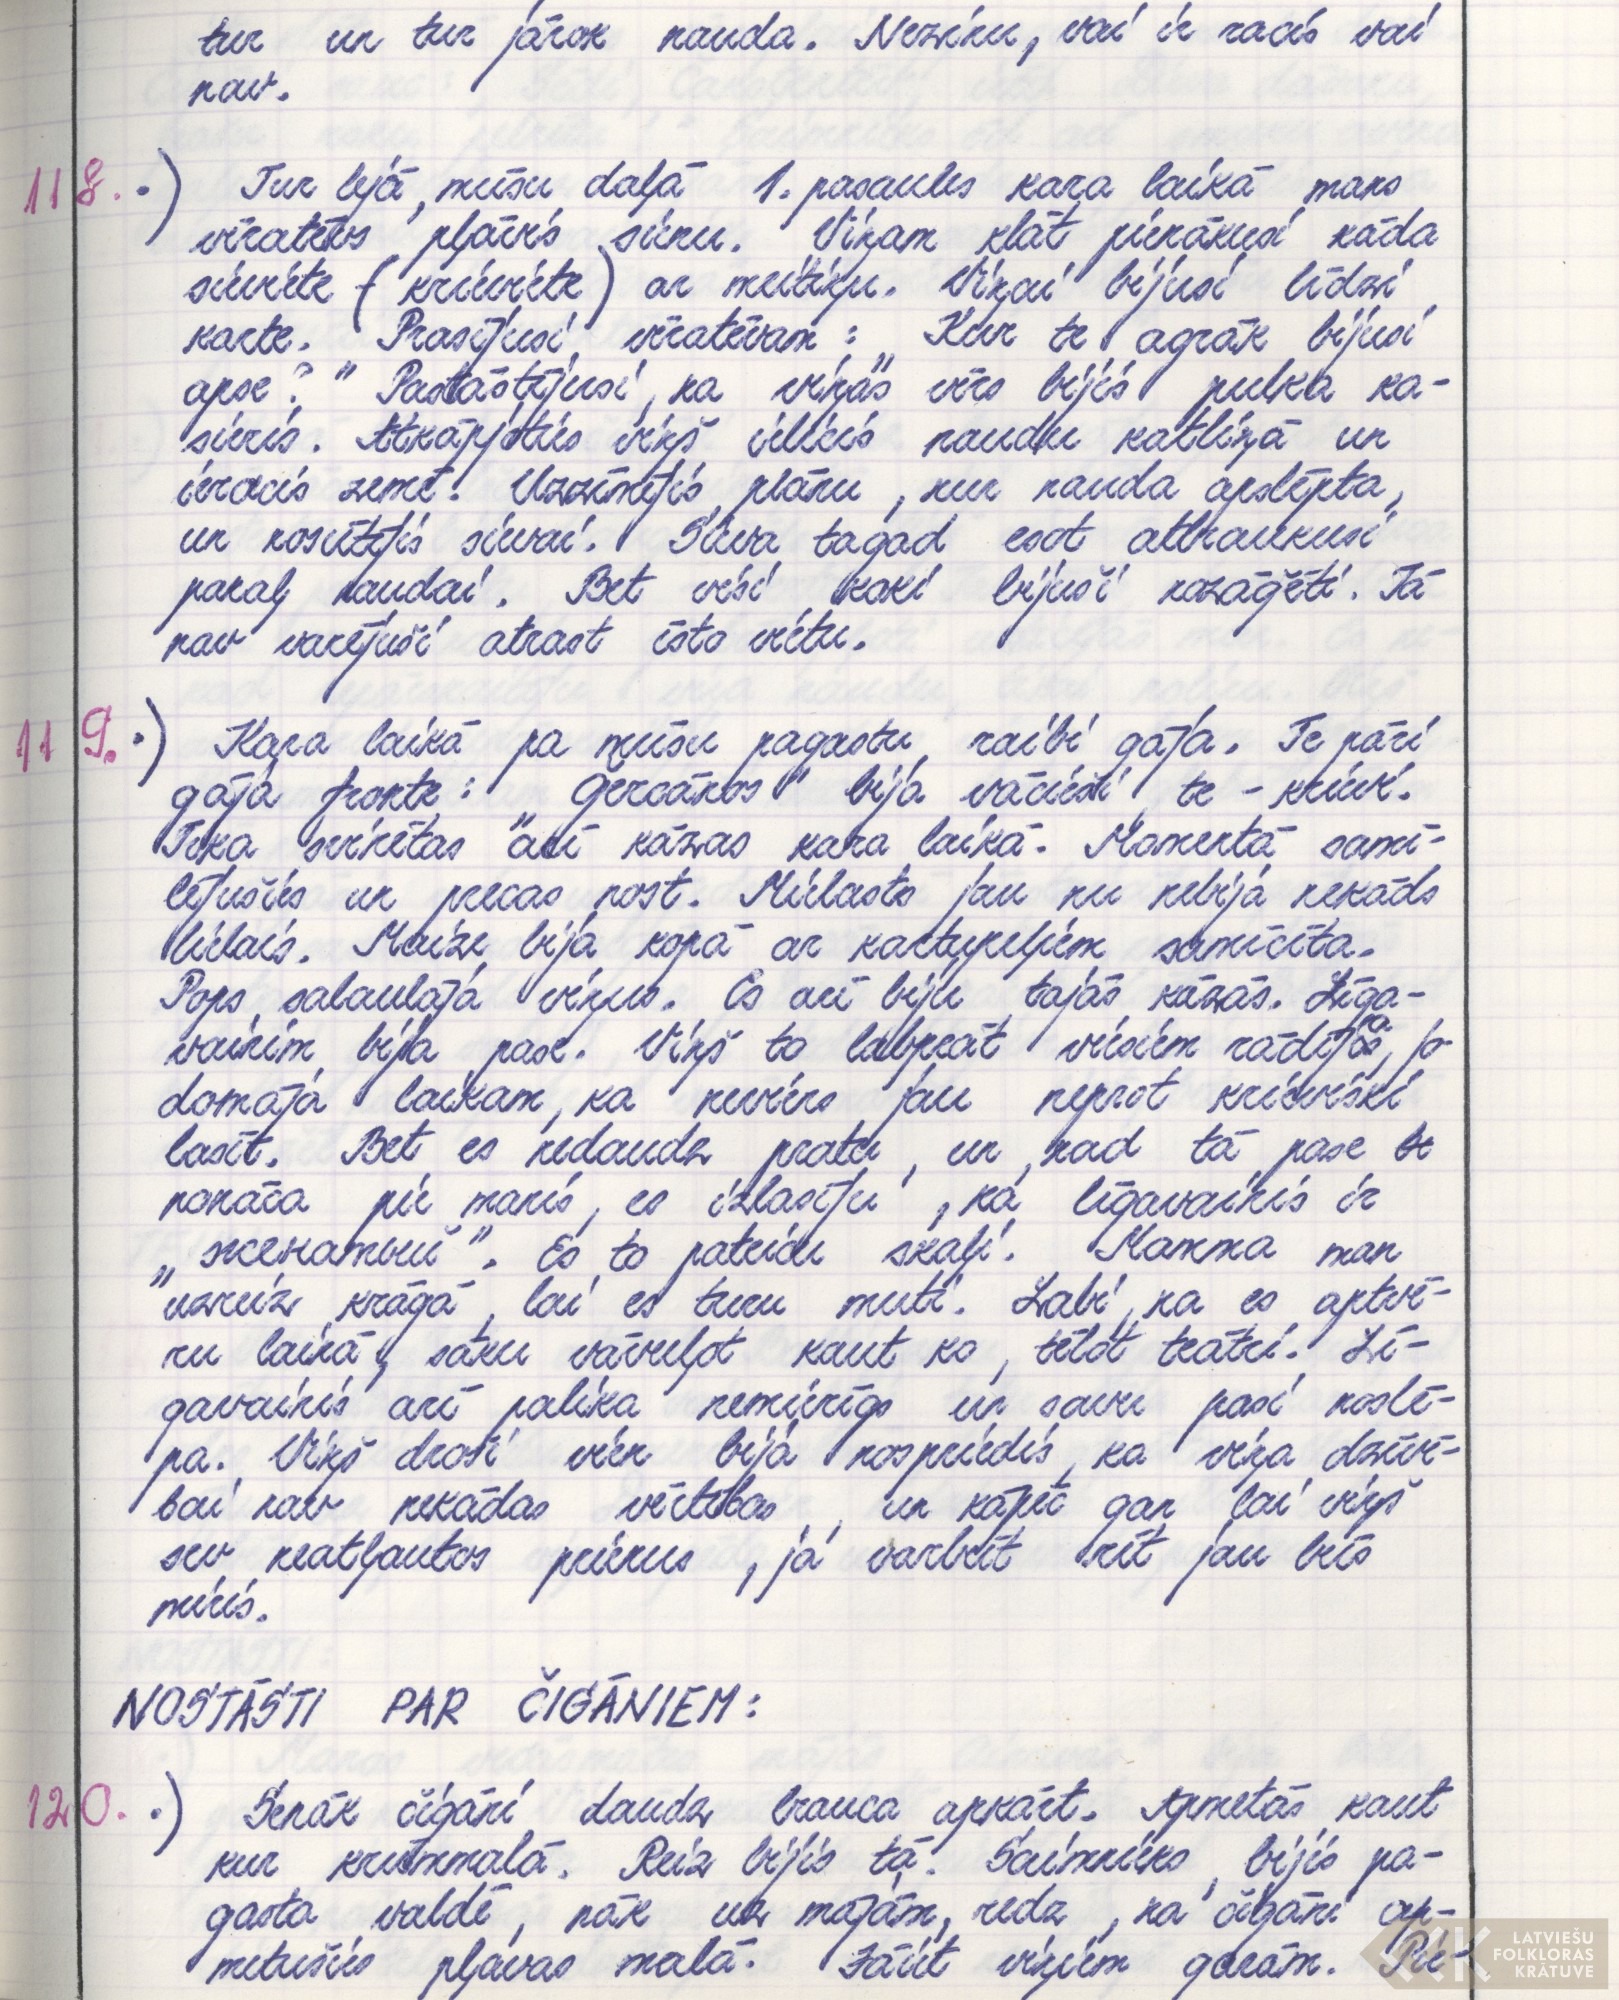 tur un tur jārok nauda. Nezinu, vai ir racis vai
nav.
118.) Tur lejā, mūsu daļā 1. pasaules kara laikā mans
vīratēvs pļāvis sienu. Viņam klāt pienākusi kāda
sieviete (krieviete) ar meiteņu. Viņai bijusi līdzi
karte. Prasījusi vīratēvam: „Kur te agrāk bijusi
apse?" Pastāstījusi, ka viņas vīrs bijis pulka ka-
sieris. Atkāpjoties viņš ielicis naudu katliņā un
ieracis zemē. Uzzīmējis plānu, kur nauda apslēpta,
un nosūtījis sievai. Sieva tagad esot atbraukusi
pakaļ naudai. Bet visi koki bijuši nozāģēti. Tā
nav varējuši atrast īsto vietu.
119.) Kara laikā pa mūsu pagastu raibi gāja. Te pāri
gāja fronte: „Gercānos" bija vācieši, te - krievi.
Tika svinētas arī kāzas kara laikā. Momentā samī-
lējušies un precas nost. Mielasts jau nu nebija nekāds
lielais. Maize bija kopā ar kartupeļiem samīcīta.
Pops salaulāja viņus. Es arī biju tajās kāzās. Līga-
vainim bija pase. Viņš to labprāt viesiem rādīja, jo
domāja laikam, ka neviens jau neprot krieviski
lasīt. Bet es nedaudz pratu, un, kad tā pase
nonāca pie manis, es izlasīju, ka līgavainis ir
„женатый". Es to pateicu skaļi. Mamma man
uzreiz krāgā, lai es turu muti. Labi, ka es aptvē-
ru laikā, sāku vāvuļot kaut ko, tēlot teātri. Lī-
gavainis arī palika nemierīgs un savu pasi noslē-
pa. Viņš droši vien bija nospriedis, ka viņa dzīvī-
bai nav nekādas vērtības, un kāpēc gan lai viņš
sev neatļautos priekus, ja varbūt rīt jau būs
miris.
NOSTĀSTI PAR ČIGĀNIEM:
120.) Senāk čigāni daudz brauca apkārt. Apmetās kaut
kur krūmmalā. Reiz bijis tā. Saimnieks bijis pa-
gasta valdē, nāk uz mājām, redz, ka čigāni ap-
metušies pļavas malā. Jāiet viņiem garām. Pie-
LATVIEŠU
FOLKLORAS
KRĀTUVE